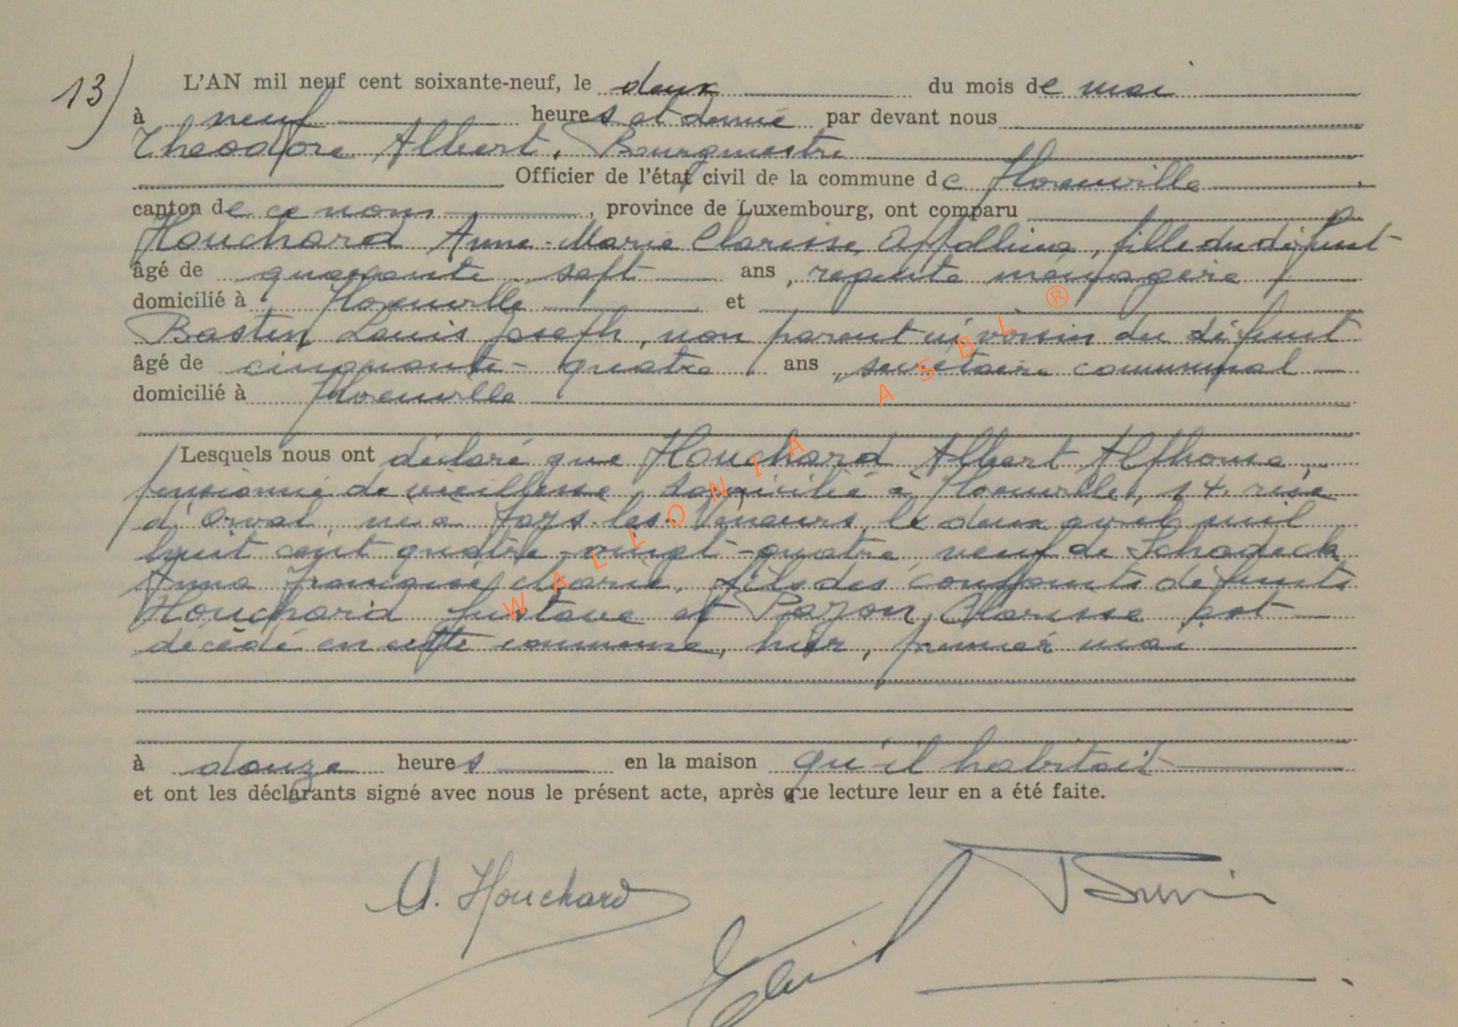 13) L'AN mil neuf cent soixante-neuf, le deux du mois de mai
à neuf heures et demie par devant nous
Théodore Albert, Bourgmestre
Officier de l'état civil de la commune de Florenville
canton de ce nom, province de Luxembourg, ont comparu
Houchard Anne-Marie Clarisse, fille du défunt
âgé de quarante sept ans, ménagère
domicilié à Florenville et
Bastin Louis Joseph, non parent ni voisin du défunt
âgé de cinquante-quatre ans, secrétaire communal
domicilié à Florenville
Lesquels nous ont déclaré que Houchard Albert Alphonse,
pensionné de vieillesse, domicilié à Florenville, 14, rue
d'Orval, né à Fays-les-Veneurs, le deux avril mil
huit cent quatre-vingt-quatre, veuf de Schadeck
Anna Françoise, fils des conjoints défunts
Houchard Gustave et Pazon Clarisse est
décédé en cette commune, hier, premier mai
à douze heures en la maison qu'il habitait
et ont les déclarants signé avec nous le présent acte, après que lecture leur en a été faite.
A. Houchard
WALLONIA ASBL ®